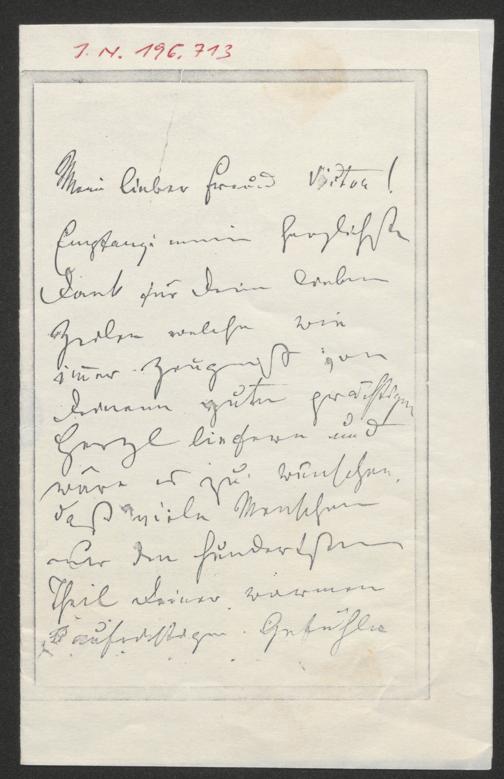 I. N. 196.713
Mein lieber Freund Victor!
Empfange meinen herzlichsten
Dank für Deine lieben
Zeilen welche wie
immer Zeugniß von
Deinem guten prächtigen
Herzl liefern und
wäre es zu wünschen,
daß viele Menschen
nur den hundertsten
Theil Deiner warmen
aufrichtigen Gefühle